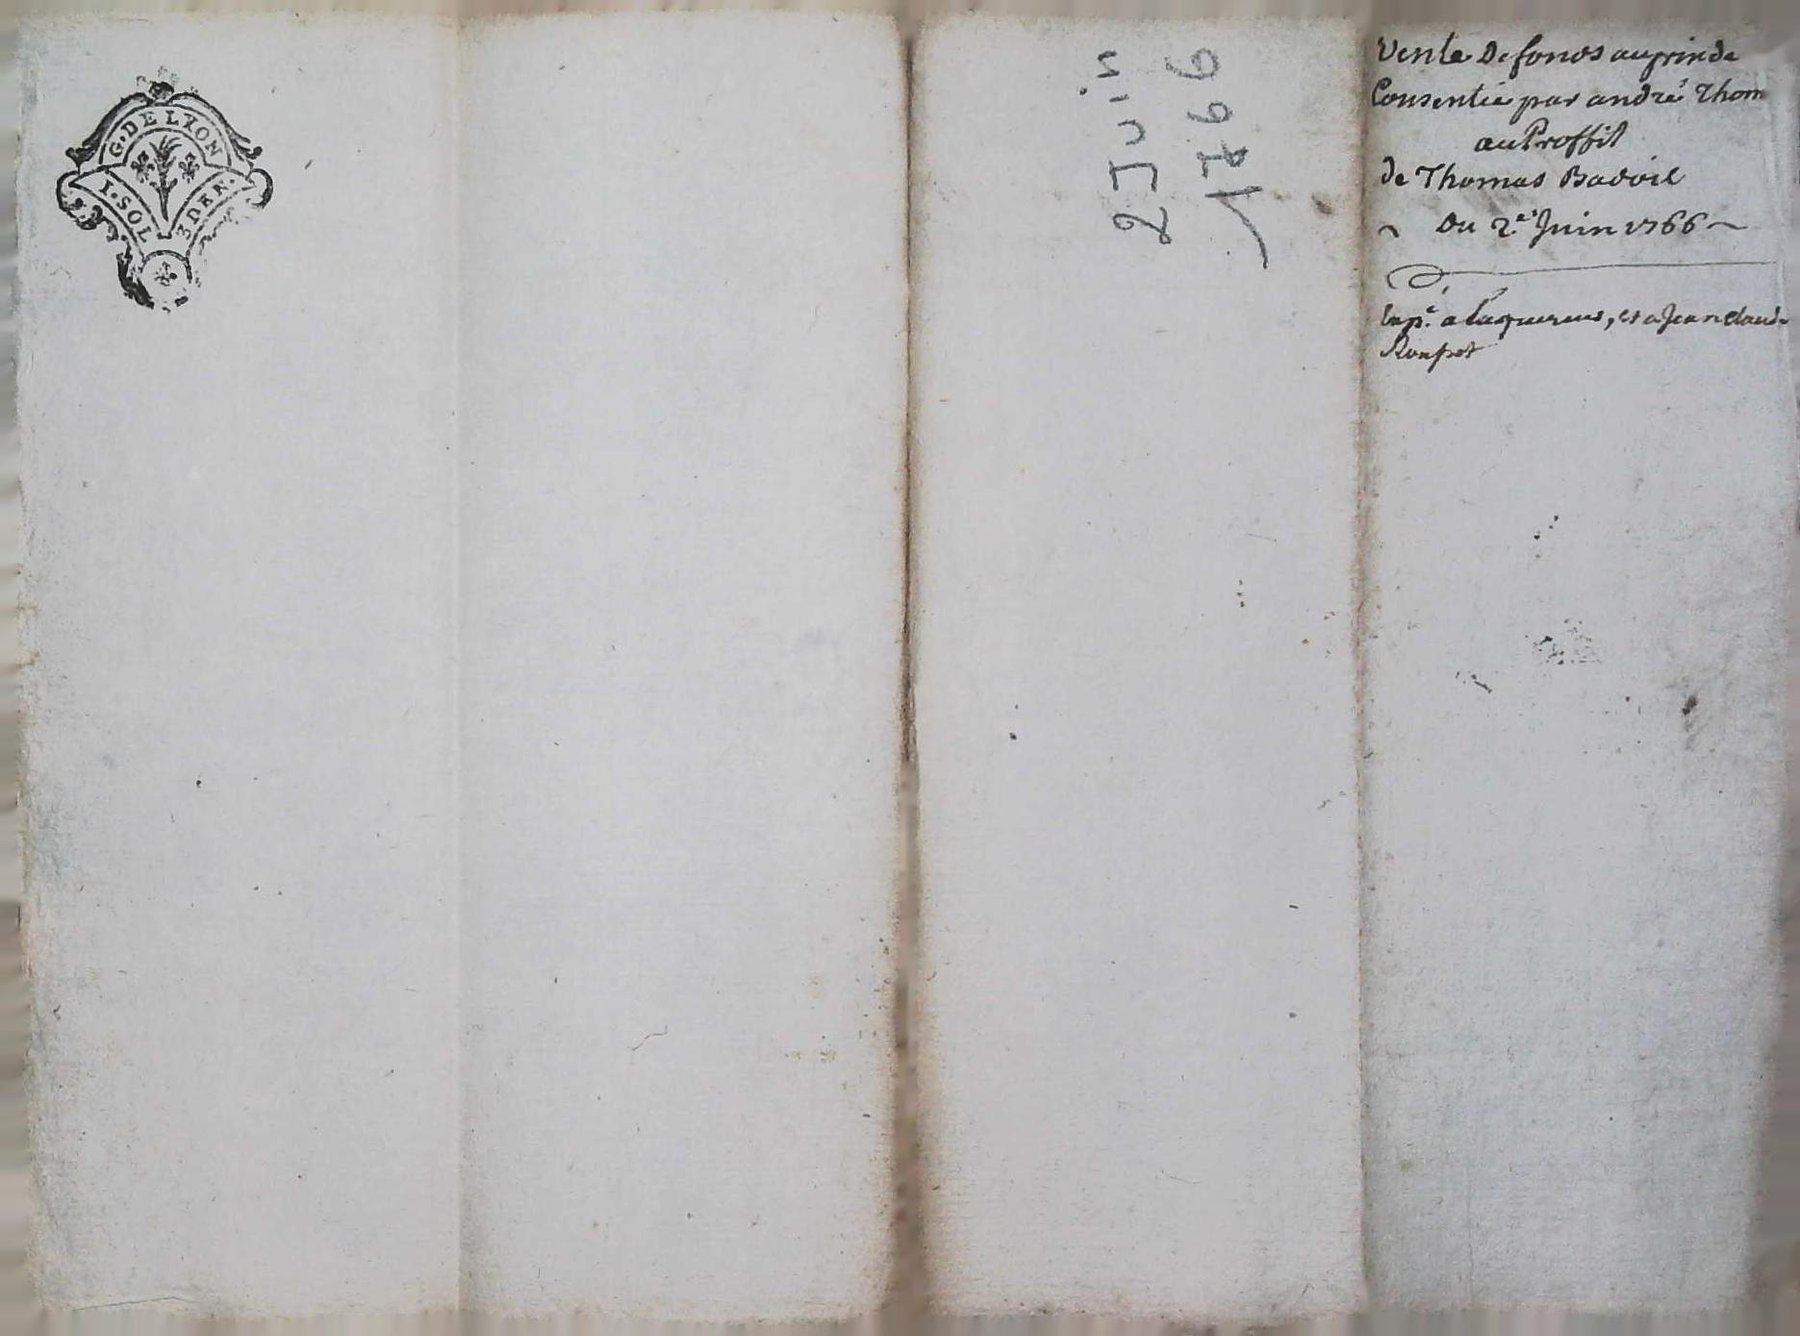 G. DE LYON
1. SOL 3 DER.
2 Juin
1766
Vente De fonds au prix de
Consentie par andré Thom
au Proffit
de Thomas Badoil
~ Du 2.e Juin 1766 ~
Exp.e a et a Jean claude